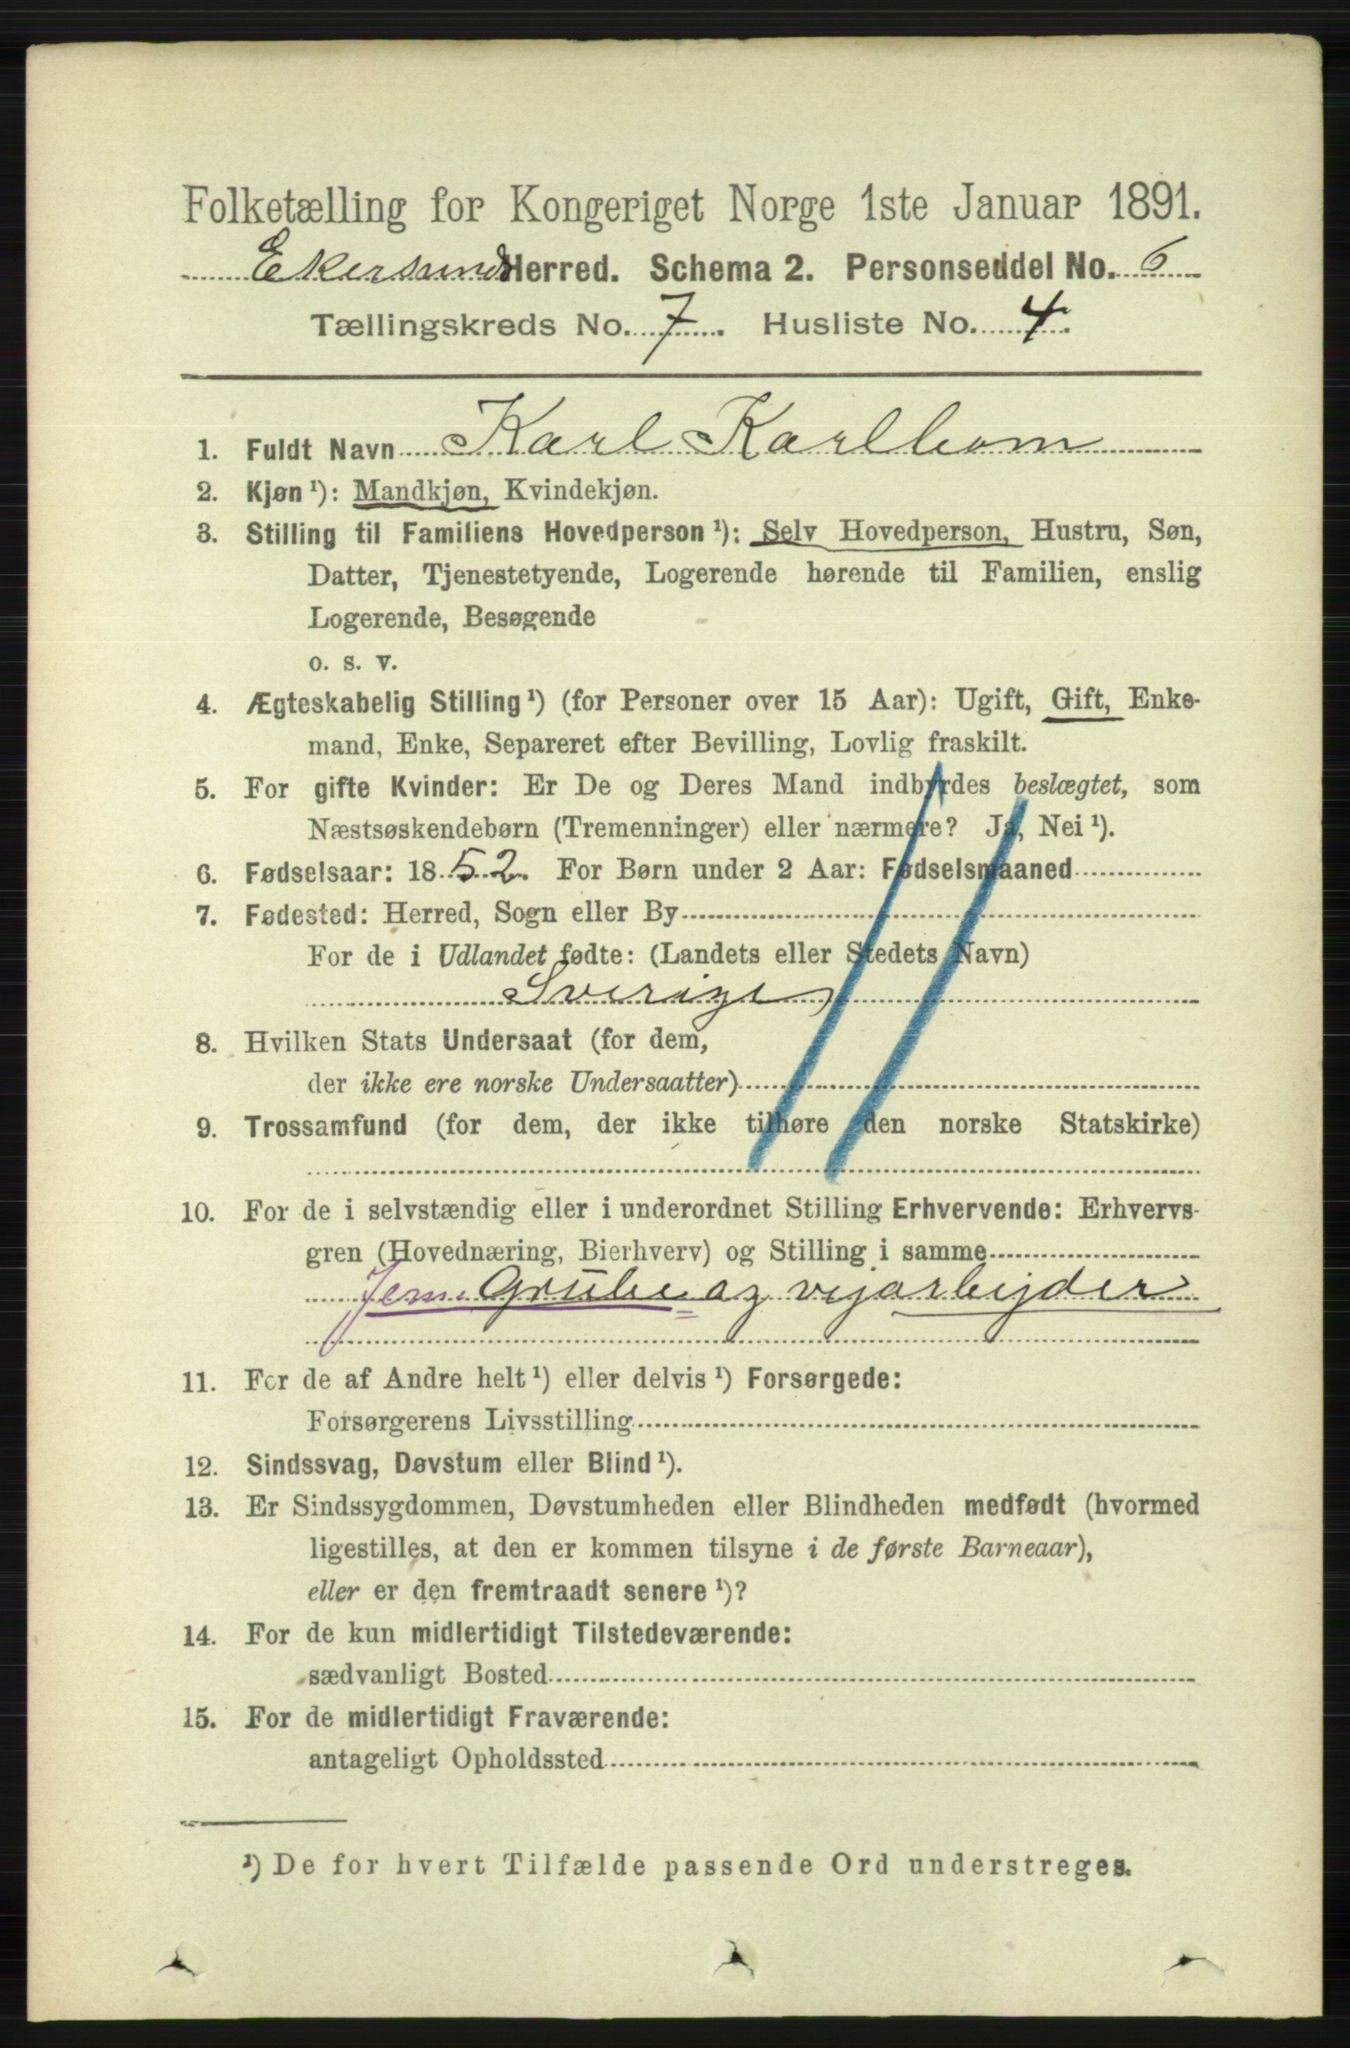 Folketælling for Kongeriget Norge 1ste Januar 1891.
Ekersund Herred. Schema 2. Personseddel No. 6
Tællingskreds No. 7. Husliste No. 4.
1. Fuldt Navn Karl Karlbom
2. Kjøn¹): Mandkjøn, Kvindekjøn.
3. Stilling til Familiens Hovedperson¹): Selv Hovedperson, Hustru, Søn,
Datter, Tjenestetyende, Logerende hørende til Familien, enslig
Logerende, Besøgende
o. s. v.
4. Ægteskabelig Stilling¹) (for Personer over 15 Aar): Ugift, Gift, Enke-
mand, Enke, Separeret efter Bevilling, Lovlig fraskilt.
5. For gifte Kvinder: Er De og Deres Mand indbyrdes beslægtet, som
Næstsøskendebørn (Tremenninger) eller nærmere? Ja, Nei¹).
6. Fødselsaar: 1852. For Børn under 2 Aar: Fødselsmaaned
7. Fødested: Herred, Sogn eller By
For de i Udlandet fødte: (Landets eller Stedets Navn)
Sverige
8. Hvilken Stats Undersaat (for dem,
der ikke ere norske Undersaatter)
9. Trossamfund (for dem, der ikke tilhøre den norske Statskirke)
10. For de i selvstændig eller i underordnet Stilling Erhvervende: Erhvervs-
gren (Hovednæring, Bierhverv) og Stilling i samme
Jern. Grube og vejarbejder
11. For de af Andre helt¹) eller delvis¹) Forsørgede:
Forsørgerens Livsstilling
12. Sindssvag, Døvstum eller Blind¹).
13. Er Sindssygdommen, Døvstumheden eller Blindheden medfødt (hvormed
ligestilles, at den er kommen tilsyne i de første Barneaar),
eller er den fremtraadt senere¹)?
14. For de kun midlertidigt Tilstedeværende:
sædvanligt Bosted
15. For de midlertidigt Fraværende:
antageligt Opholdssted
¹) De for hvert Tilfælde passende Ord understreges.